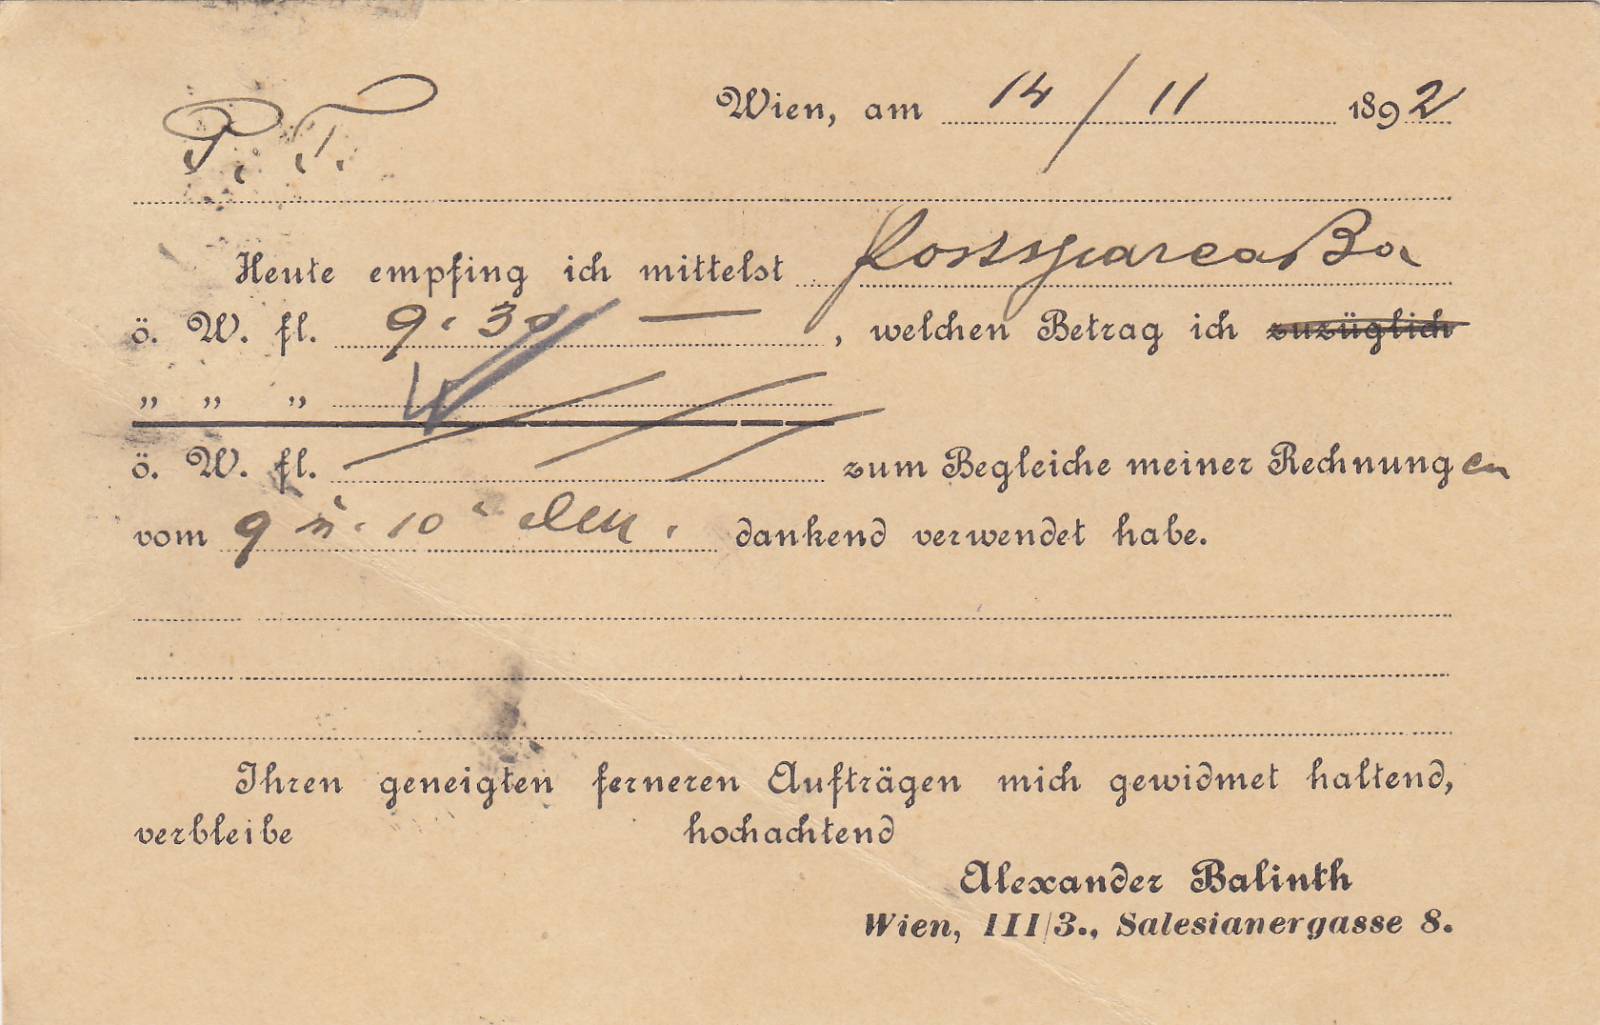 Wien, am 14/11 1892
P. T.
Heute empfing ich mittelst Postsparcassa
ö. W. fl. 9. 30 —, welchen Betrag ich zuzüglich
„ „ „
ö. W. fl. zum Begleiche meiner Rechnungen
vom 9 u. 10 dankend verwendet habe.
Ihren geneigten ferneren Aufträgen mich gewidmet haltend,
verbleibe hochachtend
Alexander Balinth
Wien, III/3., Salesianergasse 8.